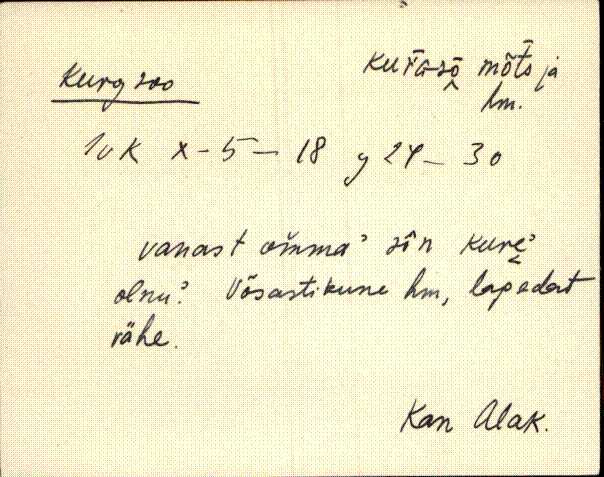 Kurgsoo
kura-sō mõts ja
hm.
1v K x-5-18 y 24-30
vanast om̄ma? sîn kure?
olnu? Võsastikune hm, lapedat
rähe.
Kan Alak.